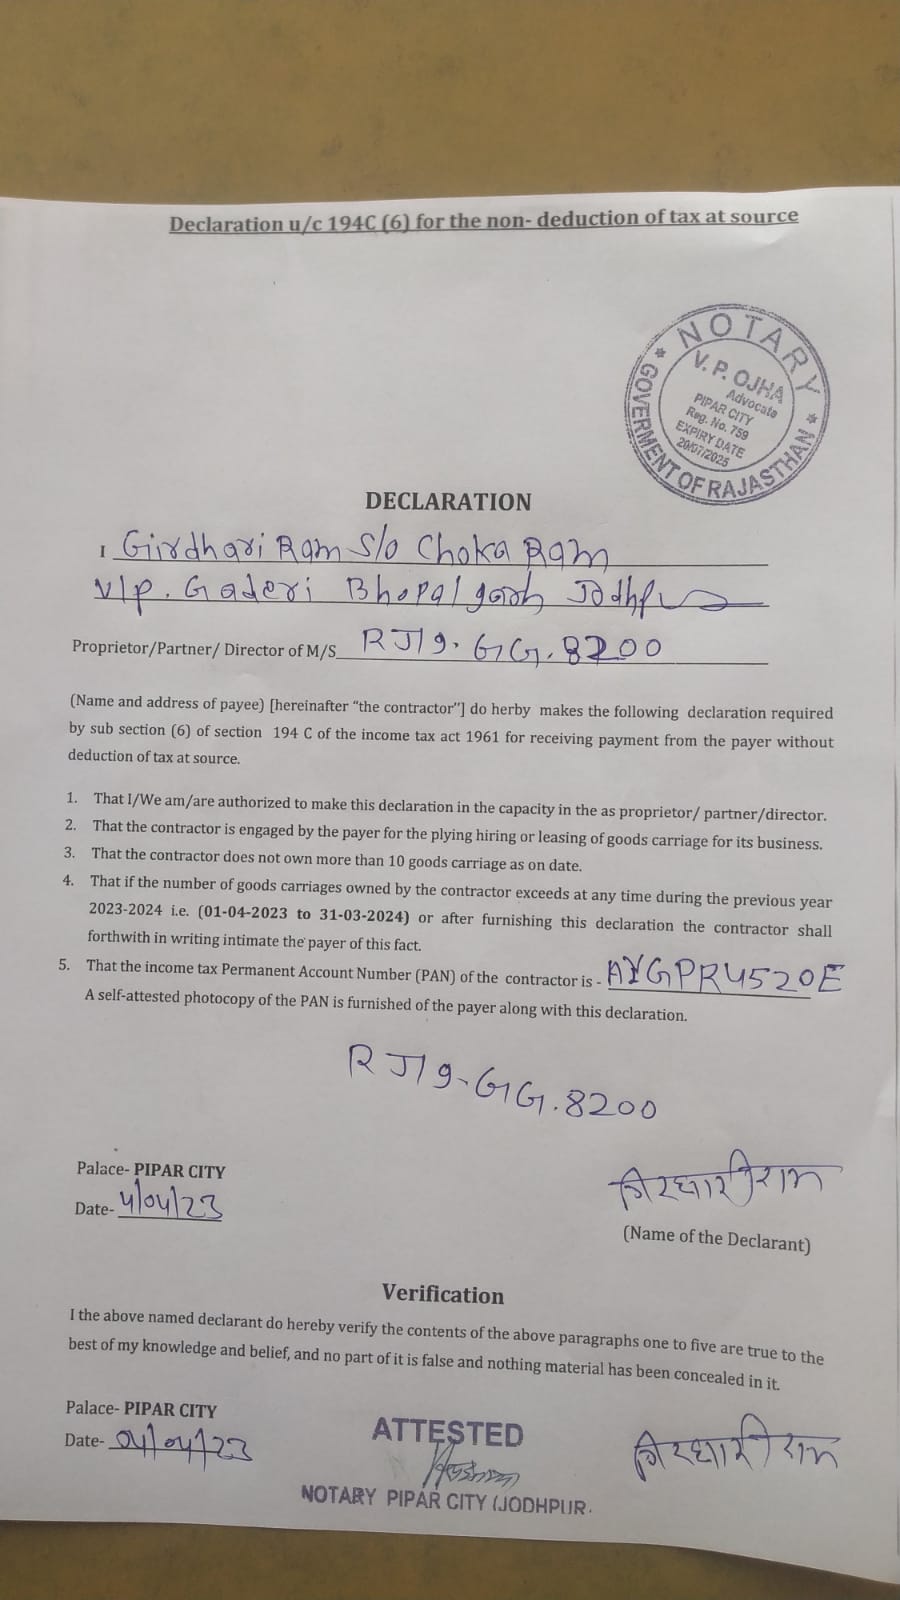 Declaration u/c 194C (6) for the non- deduction of tax at source
NOTARY
V. P. OJHA
Advocate
PIPAR CITY
Reg. No. 759
EXPIRY DATE
20/07/2025
GOVERMENT OF RAJASTHAN
DECLARATION
I Girdhari Ram S/o Choka Ram
V/p. Gaderi Bhopalgarh Jodhpur
Proprietor/Partner/ Director of M/S RJ19. GG. 8200
(Name and address of payee) [hereinafter “the contractor”] do herby makes the following declaration required
by sub section (6) of section 194 C of the income tax act 1961 for receiving payment from the payer without
deduction of tax at source.
1. That I/We am/are authorized to make this declaration in the capacity in the as proprietor/ partner/director.
2. That the contractor is engaged by the payer for the plying hiring or leasing of goods carriage for its business.
3. That the contractor does not own more than 10 goods carriage as on date.
4. That if the number of goods carriages owned by the contractor exceeds at any time during the previous year
2023-2024 i.e. (01-04-2023 to 31-03-2024) or after furnishing this declaration the contractor shall
forthwith in writing intimate the payer of this fact.
5. That the income tax Permanent Account Number (PAN) of the contractor is - AYGPR4520E
A self-attested photocopy of the PAN is furnished of the payer along with this declaration.
RJ19-GG.8200
Palace- PIPAR CITY
Date- 4/04/23
गिरधारीराम
(Name of the Declarant)
Verification
I the above named declarant do hereby verify the contents of the above paragraphs one to five are true to the
best of my knowledge and belief, and no part of it is false and nothing material has been concealed in it.
Palace- PIPAR CITY
Date- 04/04/23
ATTESTED
गिरधारीराम
NOTARY PIPAR CITY (JODHPUR.